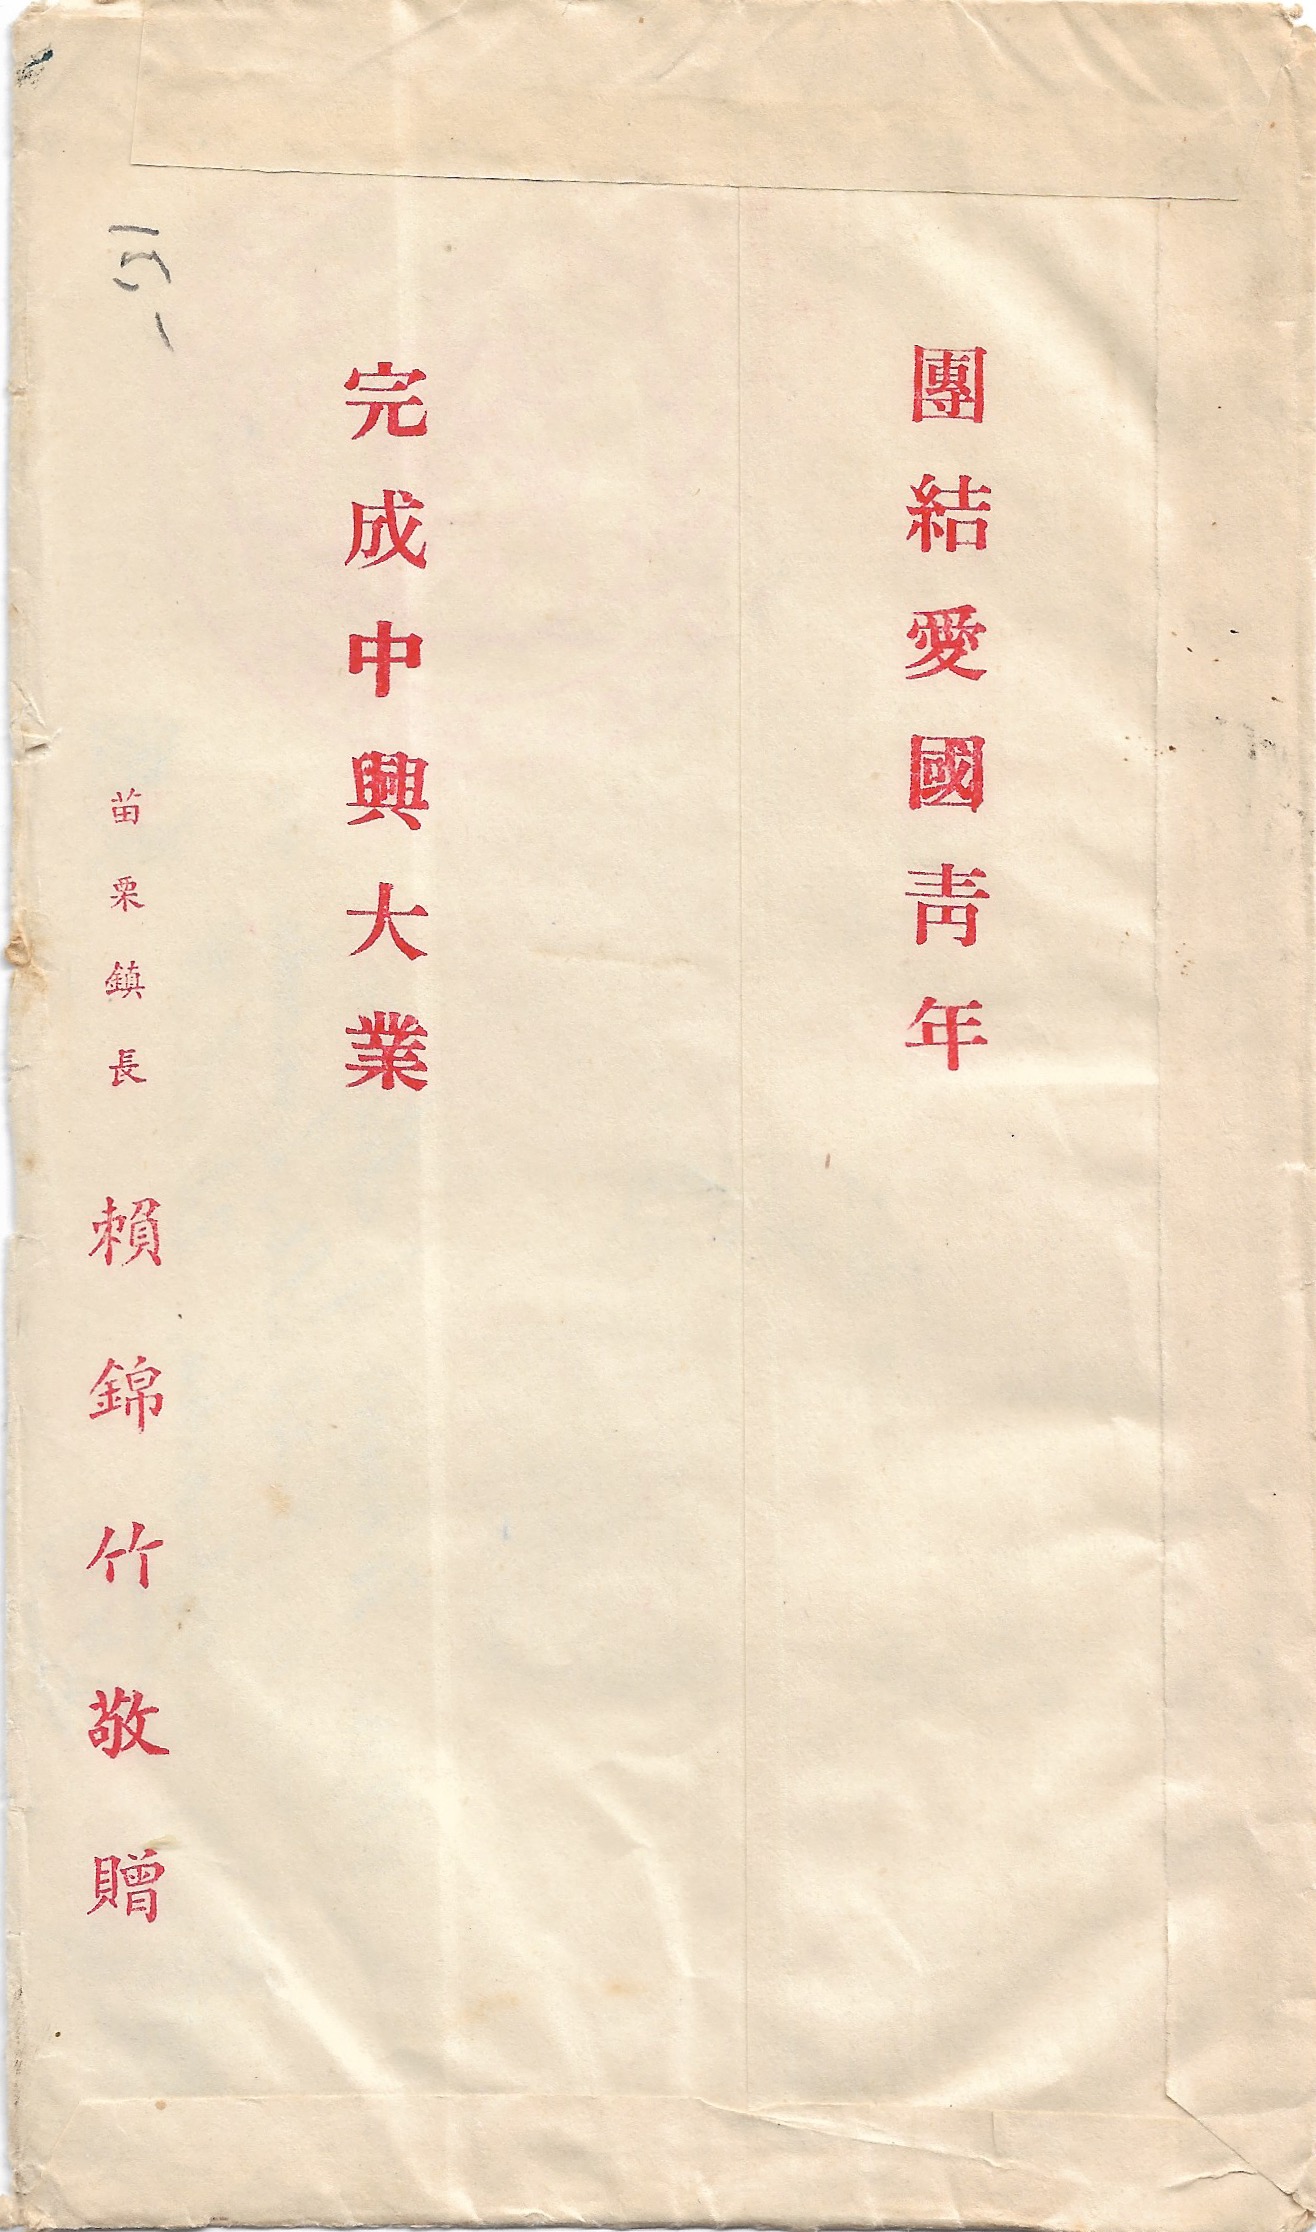 團結愛國青年
完成中興大業
苗栗鎮長 賴錦竹敬贈